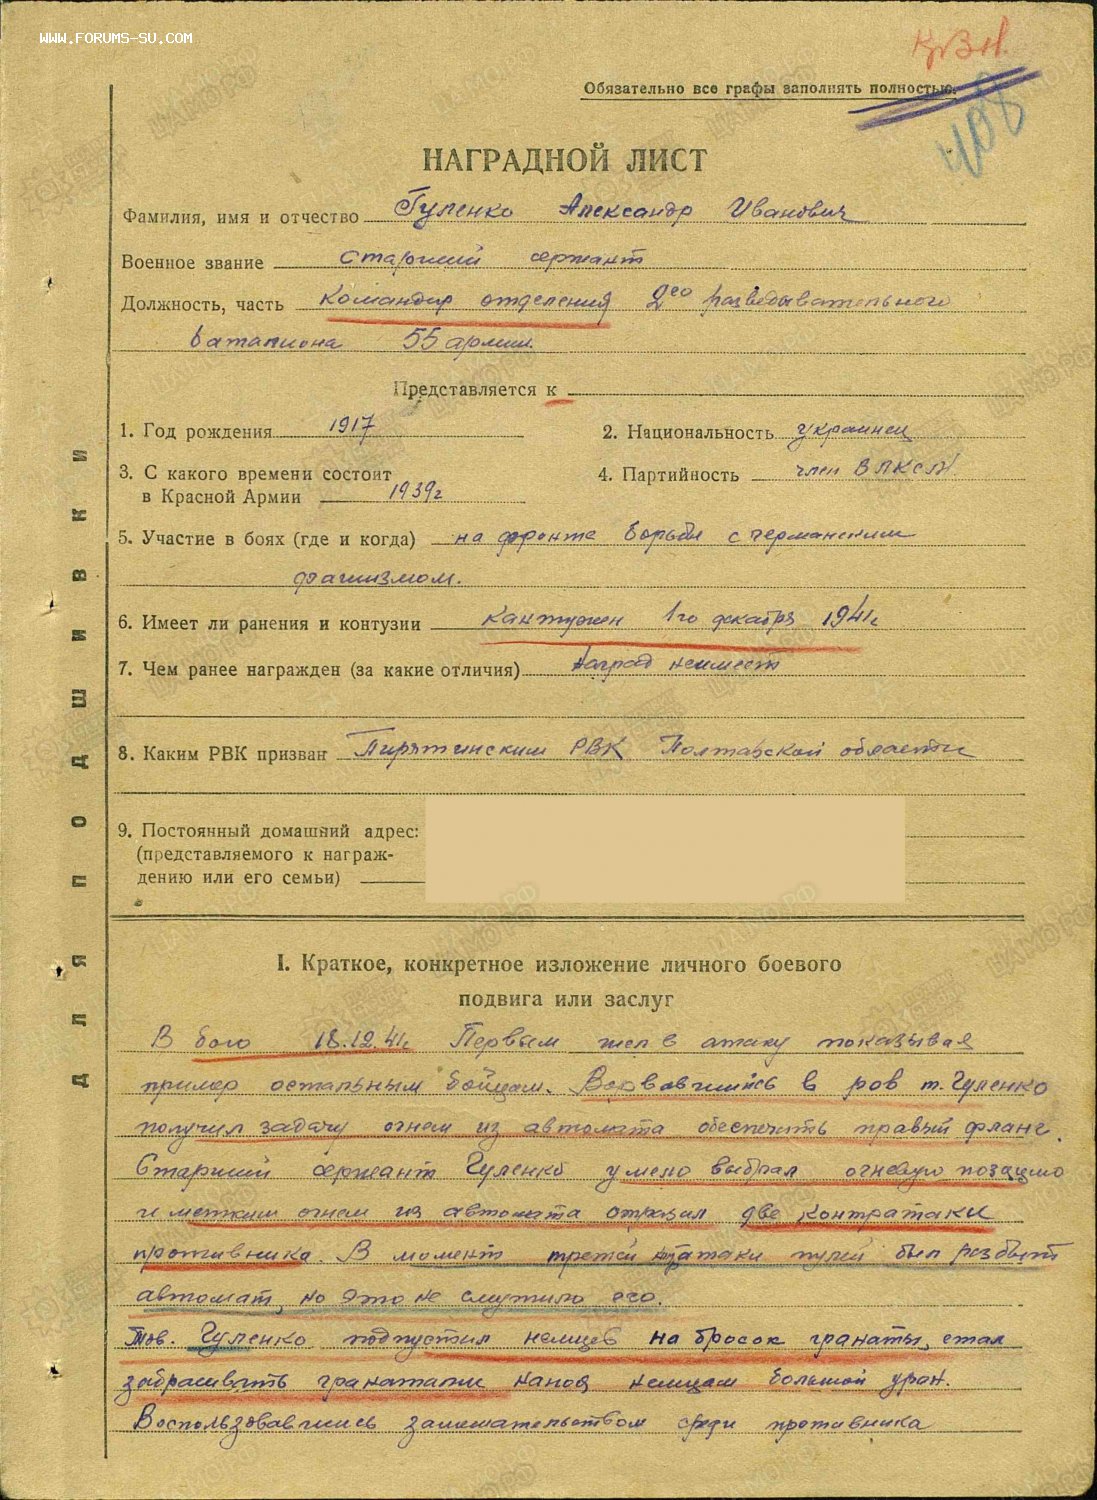 WWW.FORUMS-SU.COM
КрЗн.
Обязательно все графы заполнять полностью.
408
НАГРАДНОЙ ЛИСТ
Фамилия, имя и отчество Гуленко Александр Иванович
Военное звание Старший сержант
Должность, часть Командир отделения 2го разведывательного
батальона 55 армии.
Представляется к
1. Год рождения 1917
2. Национальность украинец
3. С какого времени состоит
в Красной Армии 1939г
4. Партийность член ВЛКСМ.
5. Участие в боях (где и когда) на фронте борьбы с германским
фашизмом.
6. Имеет ли ранения и контузии Кантужен 1го декабря 1941г.
7. Чем ранее награжден (за какие отличия) наград неимеет
8. Каким РВК призван Пирятинским РВК Полтавской области
9. Постоянный домашний адрес:
(представляемого к награж-
дению или его семьи)
I. Краткое, конкретное изложение личного боевого
подвига или заслуг
В бою 18.12.41г. Первым шел в атаку показывая
пример остальным бойцам. Ворвавшись в ров т. Гуленко
получил задачу огнем из автомата обеспечить правый фланг.
Старший сержант Гуленко умело выбрал огневую позацию
и метким огнем из автомата отразил две контратаки
противника. В момент третей атаки пулей был разбыт
автомат, но это не смутило его.
тов. Гуленко подпустил немцев на бросок гранаты, стал
забрасывать гранатами нанося немцам большой урон.
Воспользовавшись замешательством среди противника
ДЛЯ ПОДШИВКИ